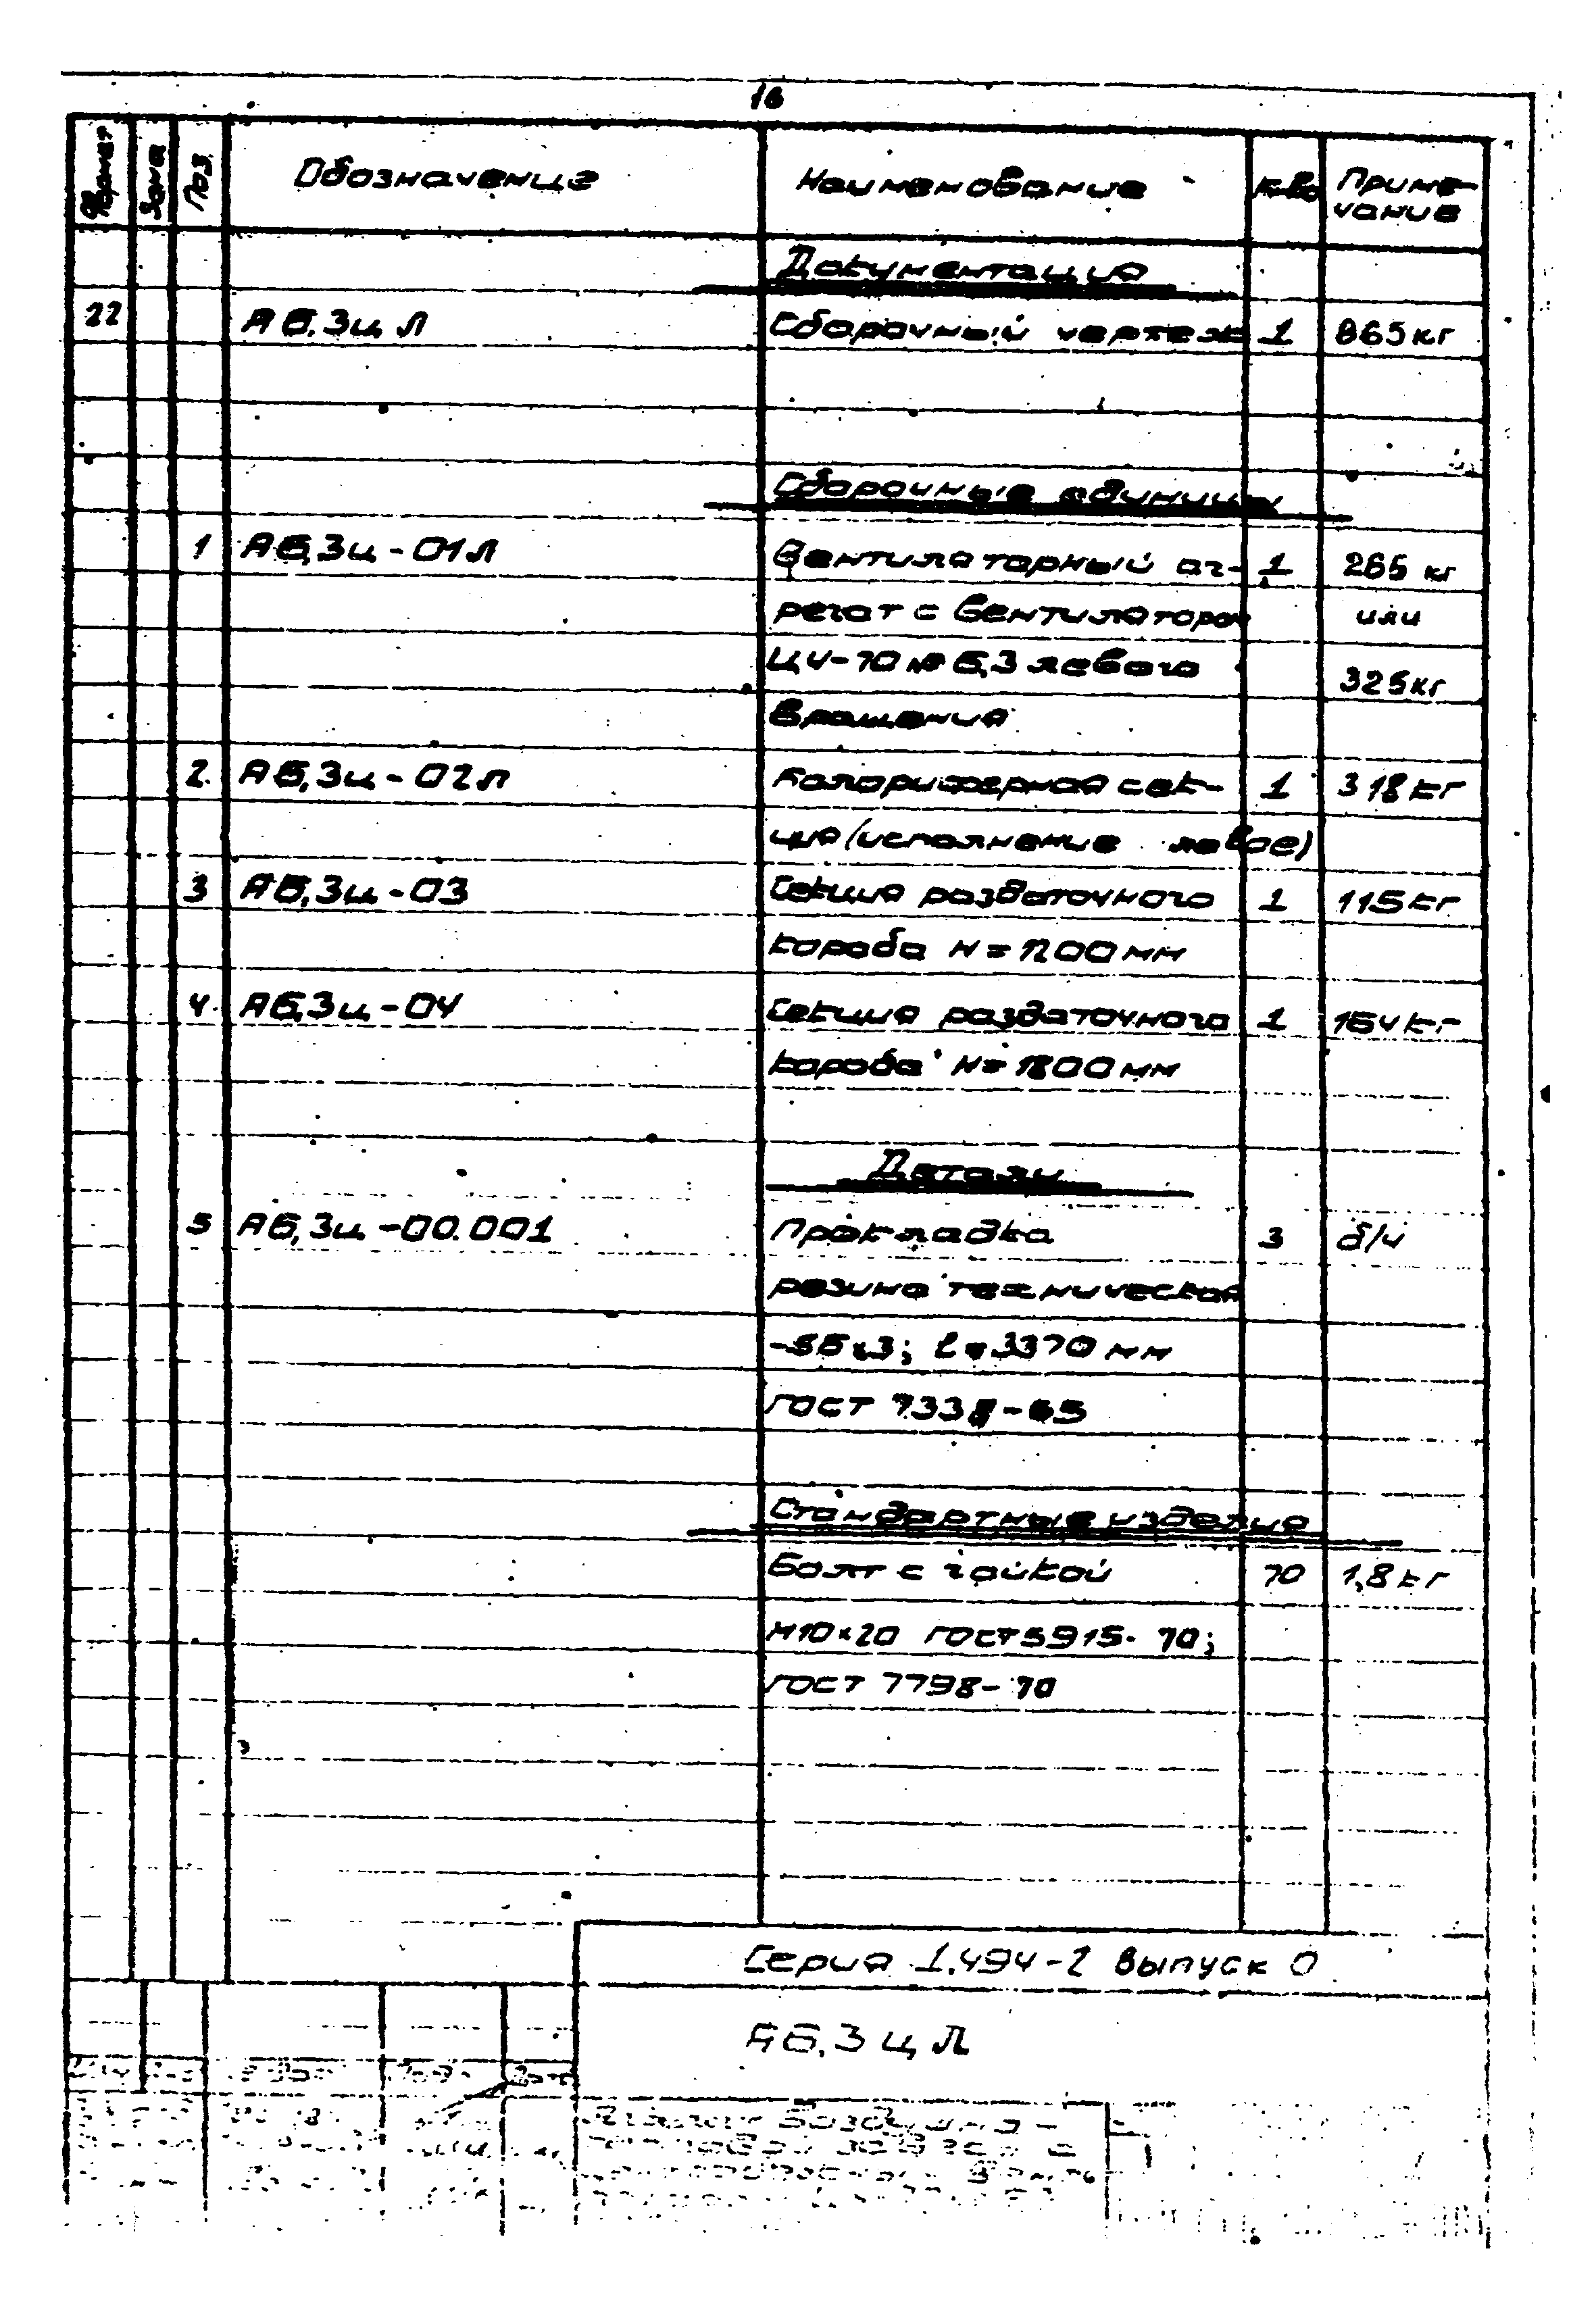 16
Формат Зона Поз. Обозначение Наименование к-во Приме-
чание
Документация
22 А6,3ц Л Сборочный чертеж 1 865кг
Сборочные единицы
1 А6,3ц-01Л Вентиляторный аг- 1 265 кг
регат с вентилятором или
Ц4-70 № 6,3 левого 325кг
вращения
2. А6,3ц-02Л Калориферная сек- 1 318кг
ция (исполнение левое)
3 А6,3ц-03 Секция раздаточного 1 115кг
короба Н=1200мм
4. А6,3ц-04 Секция раздаточного 1 164кг
короба Н=1800мм
Детали
5 А6,3ц-00.001 Прокладка 3 б/ч
резина техническая
l=3370 мм
ГОСТ 7338-65
Стандартные изделия
Болт с гайкой 70 1,8кг
М10×20 ГОСТ 5915-70;
ГОСТ 7798-70
Серия 1.494-2 выпуск 0
А6,3 ц Л